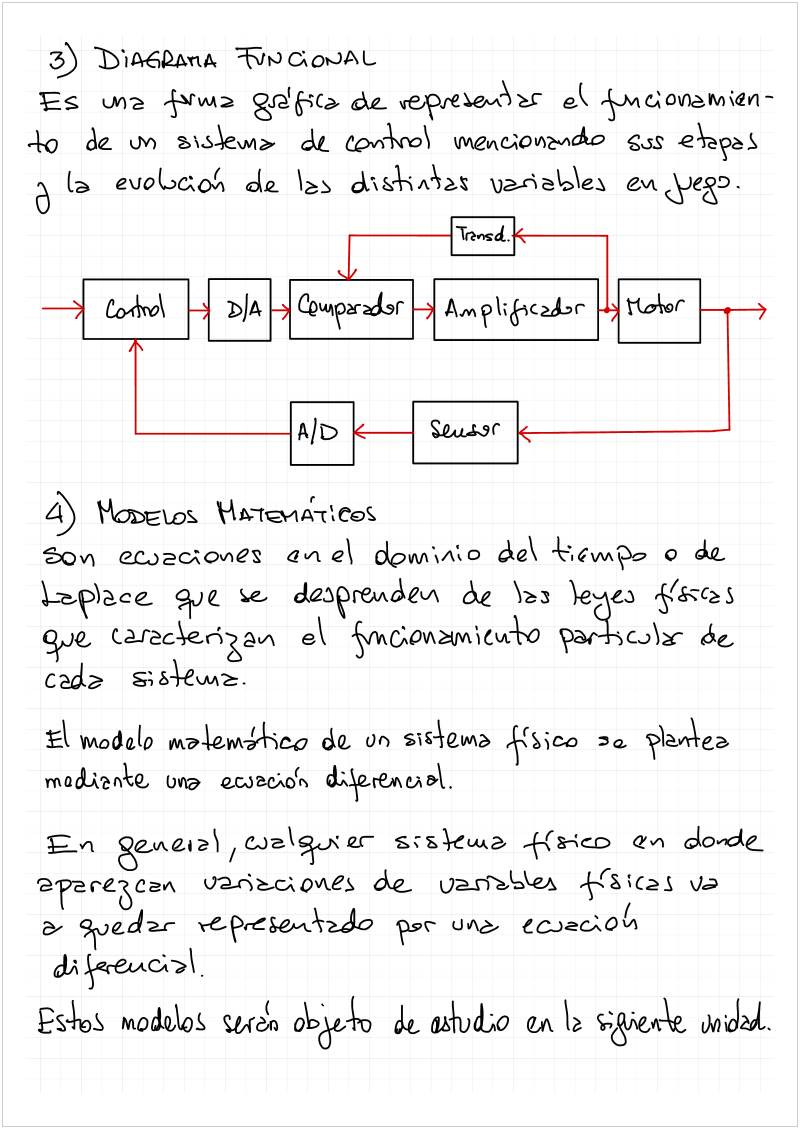 3) DIAGRAMA FUNCIONAL
Es una forma gráfica de representar el funcionamien-
to de un sistema de control mencionando sus etapas
y la evolución de las distintas variables en juego.
Transd.
Control D/A Comparador Amplificador Motor
A/D Sensor
4) MODELOS MATEMÁTICOS
Son ecuaciones en el dominio del tiempo o de
Laplace que se desprenden de las leyes físicas
que caracterizan el funcionamiento particular de
cada sistema.
El modelo matemático de un sistema físico se plantea
mediante una ecuación diferencial.
En general, cualquier sistema físico en donde
aparezcan variaciones de variables físicas va
a quedar representado por una ecuación
diferencial.
Estos modelos serán objeto de estudio en la siguiente unidad.